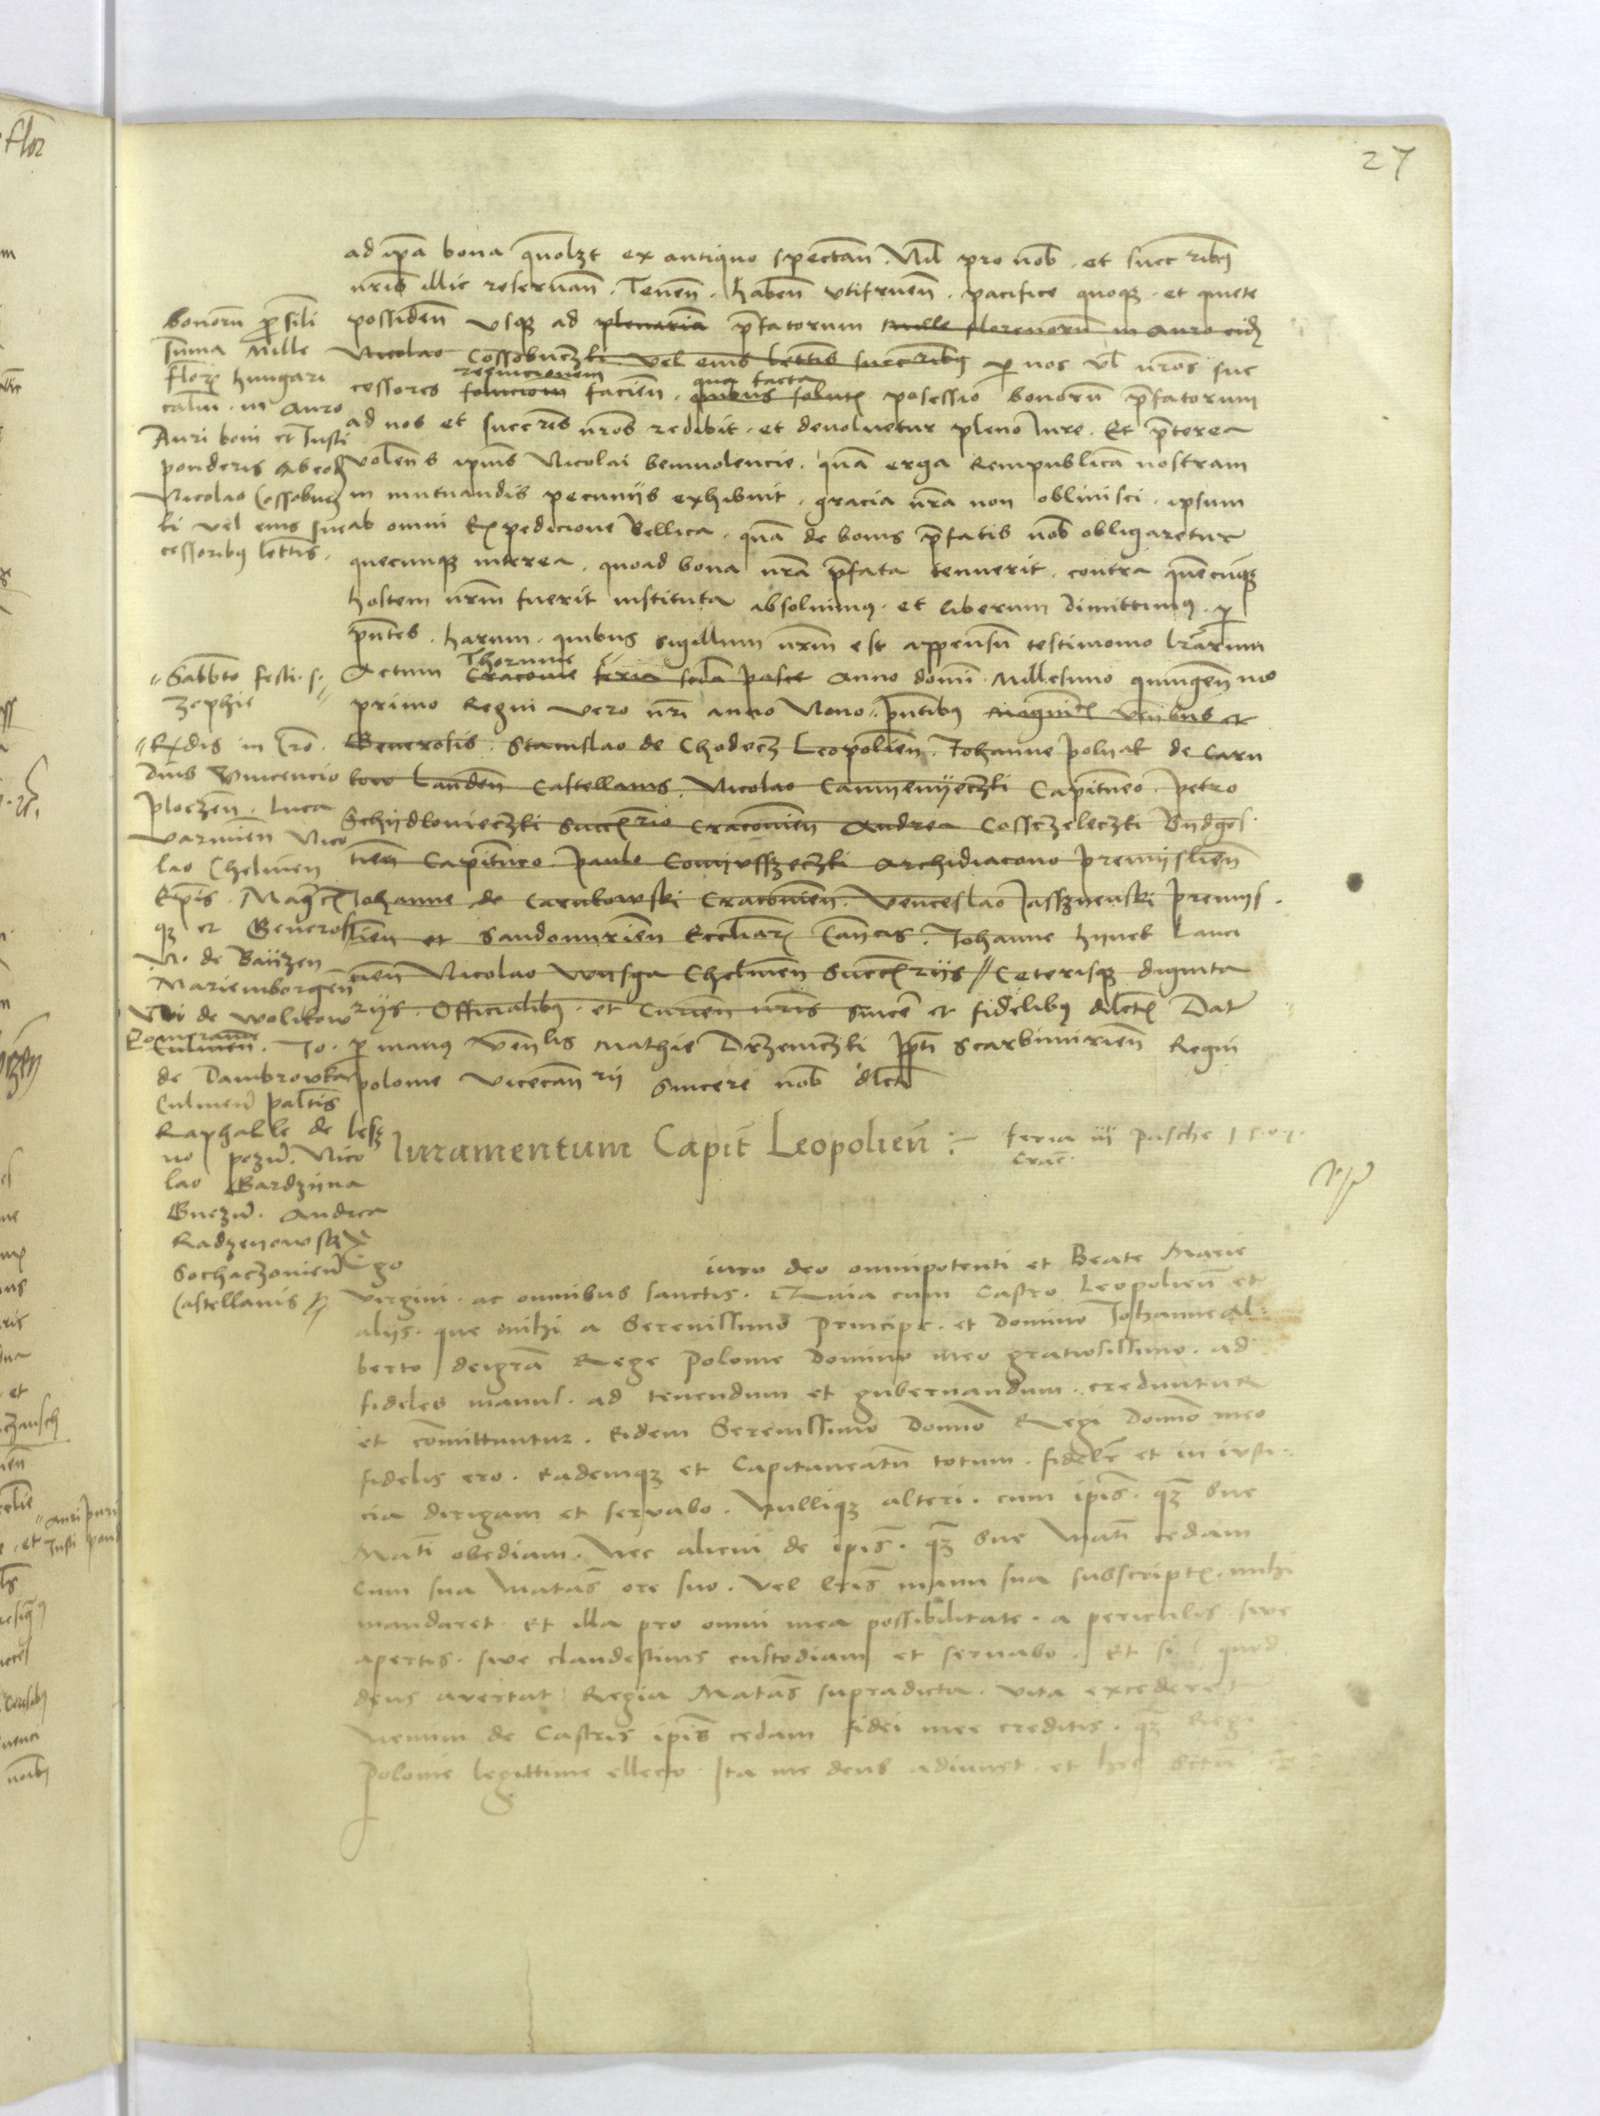 27
ad ip̄a bona quōlzt ex antiquo spectan̄. Nil pro nob̄. et succ̄ribꝫ
nr̄is illic reseruan̄. Tenen̄. haben̄ vtifruen̄. pacifice quoqꝫ. et quiete
possiden̄ vsqꝫ ad plenariā p̄fatorum mille florenorū in auro eidꝫ
Nicolao Cossobuczki vel eius lett̄is succ̄ribꝫ ꝑ nos vl̄ nr̄os suc
reempcionem qua facta
cessores solucionem facien̄. quibus solutꝭ posessio bonorū p̄fatorum
ad nos et succ̄res nr̄os redibit. et deuoluetur pleno Iure. Et p̄terea
volens ip̄ius Nicolai beniuolencie. quā erga Rempublicā nostram
in mutuandis pecunijs exhibuit. gracia nr̄a non obliuisci. ipsum
ab omni Expedicione Bellica. quā de bonis p̄fatis nob̄ obligaretur
quecunqꝫ interea. quoad bona nr̄a p̄fata tenuerit. contra quēcūqꝫ
hostem nr̄m fuerit instituta absoluimꝰ. et liberum dimittimꝰ. ꝑ
pn̄tes. harum. quibus sigillum nr̄m est appensū testimonio lr̄arum
Thorunie
Actum Cracouie feria scd̄a pasce Anno domī Millesimo quingen̄mo
primo Regni vero nr̄i anno Nono. pn̄tibꝰ magnificꝭ Ven̄ibus et
Generosis. Stanislao de Chodecz Leopolien̄. Iohanne polyak de Carn
kow Landen̄ Castellanis. Nicolao Camyenyeczki Capitneo. Petro
Schydlowieczki Succ̄rio Cracouien̄ Andrea Cosczeleczki Bydgos
tien̄ Capitneo. Paulo Comysseczki Archidiacono premyslien̄
Iohanne de Carnkowski Cracouien̄. Venceslao Jasszyenski Premys
lien̄ et Sandomirien̄ Eccl̄iarꝭ Can̄cis. Iohanne hynek Lanci
cien̄ Nicolao Wysga Chelmen̄ Succ̄rijs // Ceterisqꝫ dignita
rijs. Officialibꝰ. et Curien̄ nr̄is sincē et fidelibꝰ dilectꝭ Dat̄
ꝑ manꝰ Ven̄lis Mathie Drzewiczki pp̄ti Scarbimirien̄ Regni
polonie Vicecan̄rij sincere nob̄ dilcti
bonorū p̄ sili
sum̄a Mille
florꝭ hungari
caliū. in Auro
Auri boni et Iusti
ponderis ab eodꝫ
Nicolao Cossobucz
ki vel eius suc
cessoribꝰ lett̄is.
Sabb̄to festi. s.
Zophie
Rn̄dis in Cr̄o.
dn̄is Vincencio
ploczen̄. Luca
Varmien̄ Nico
lao Chelmen̄
Ep̄is. Mag̅cis
qꝫ et Generos
N. de Bayzen
Mariemborgen̄
de Wolikow
Pomeranie
Culmen̄. Io.
de Dambrowka
Culmen̄ pal̄tis
Raphaele de Lesz
no pozn̄. Nico
lao Bardzyna
Gnezn̄. Andrea
Radzeyowski
Sochaczouien̄
Castellanis
Iuramentum Capit̄ Leopolien̄ :~ feria iii Pasche 1501.
Crac̄.
Ego iuro deo omnipotenti et Beate Marie
virgini. ac omnibus sanctis. Quia cum Castro Leopolien̄ et
alijs. que mihi a Serenissimo Principe. et Domino Iohanne Al
berto deigrā Rege Polonie Domino meo gratiosissimo. ad
fideles manus. ad tenendum et gubernandum. creduntur
et cōmittuntur. Eidem Serenissimo Domno Regi Domno meo
fidelis ero. Eademqꝫ et Capitaneatū totum. fidelr̄ et in iusti
cia dirigam et seruabo. Nulliqꝫ alteri. cum ip̄is. qꝫ sue
Mati obediam. Nec alicui de ip̄is. qꝫ sue Mati cedam
Cum sua Matas ore suo. vel lr̄is manu sua subscriptꝭ. mihi
mandaret. Et illa pro omni mea possibilitate. a periculis siue
apertis. siue clandestinis custodiam et seruabo. Et si quod
deus avertat Regia Matas supradicta. vita excederet
Nemini de Castris ip̄is cedam fidei mee creditis. qꝫ Regi
Polonie legittime ellecto. Ita me deus adiuuet. et hec Scta